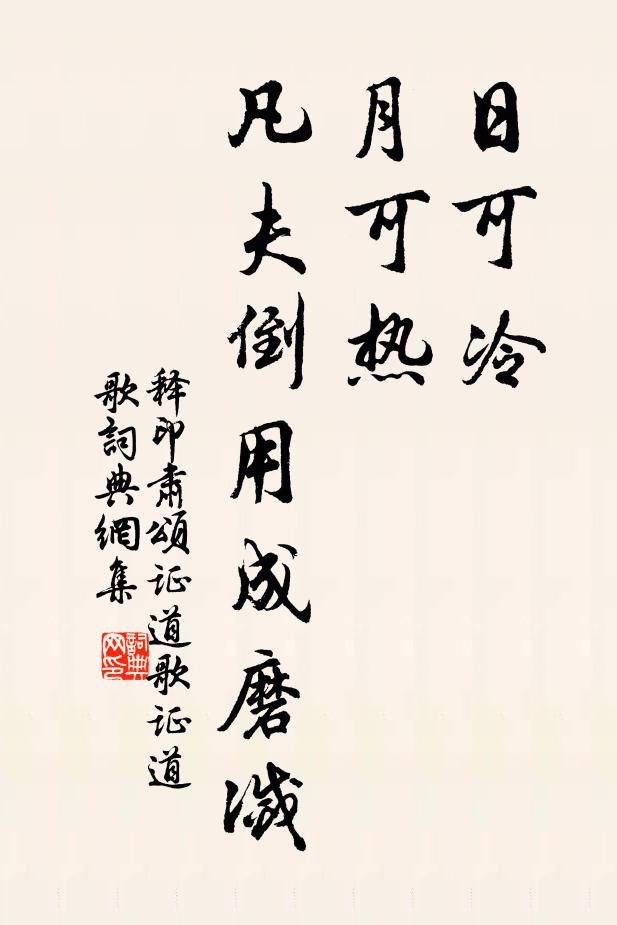 日可冷
月可热
凡夫倒用成磨灭
释印肃颂证道歌证道
歌詞典網集
詞典
网印